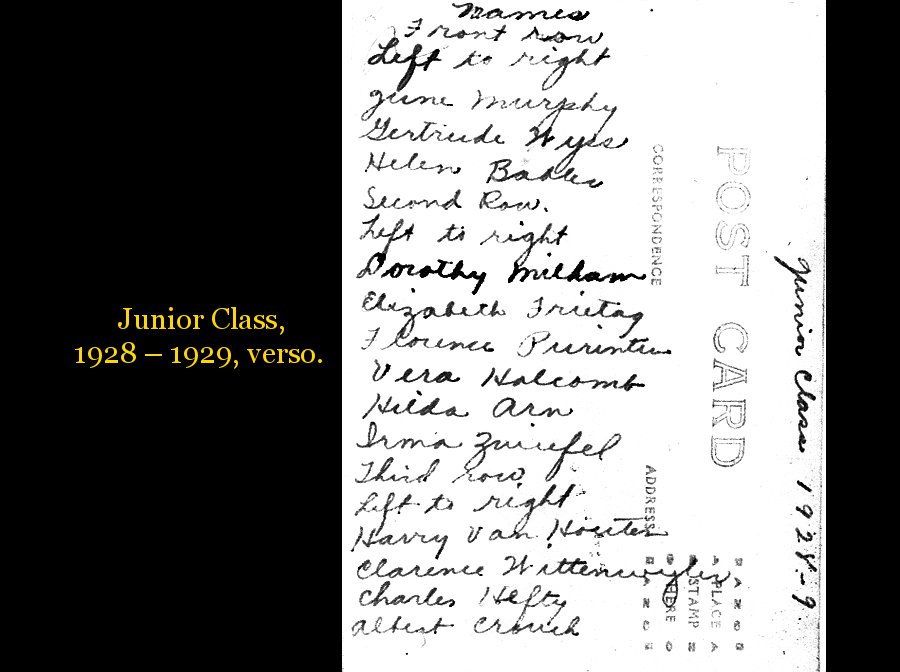 Junior Class,
1928 – 1929, verso.
Names
Front row
Left to right
June Murphy
Gertrude Wyss
Helen Babler
Second Row.
Left to right
Dorothy Milham
Elizabeth Frietag
Florence
Vera Holcomb
Hilda Arn
Irma Zwiefel
Third row
Left to right
Harry Van Houten
Clarence Wittenwyler
Charles Hefty
Albert Crouch
CORRESPONDENCE
ADDRESS
POST CARD
PLACE
STAMP
HERE
Junior Class 1928-9